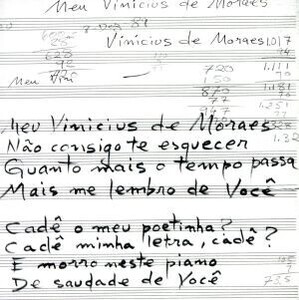 Meu Vinicius de Moraes
Vinicius de Moraes
Meu Vini
720
Meu Vinicius de Moraes
Não consigo te esquecer
Quanto mais o tempo passa
Mais me lembro de Você
Cadê o meu poetinha?
Cadê minha letra, cadê?
E morro neste piano
De saudade de Você